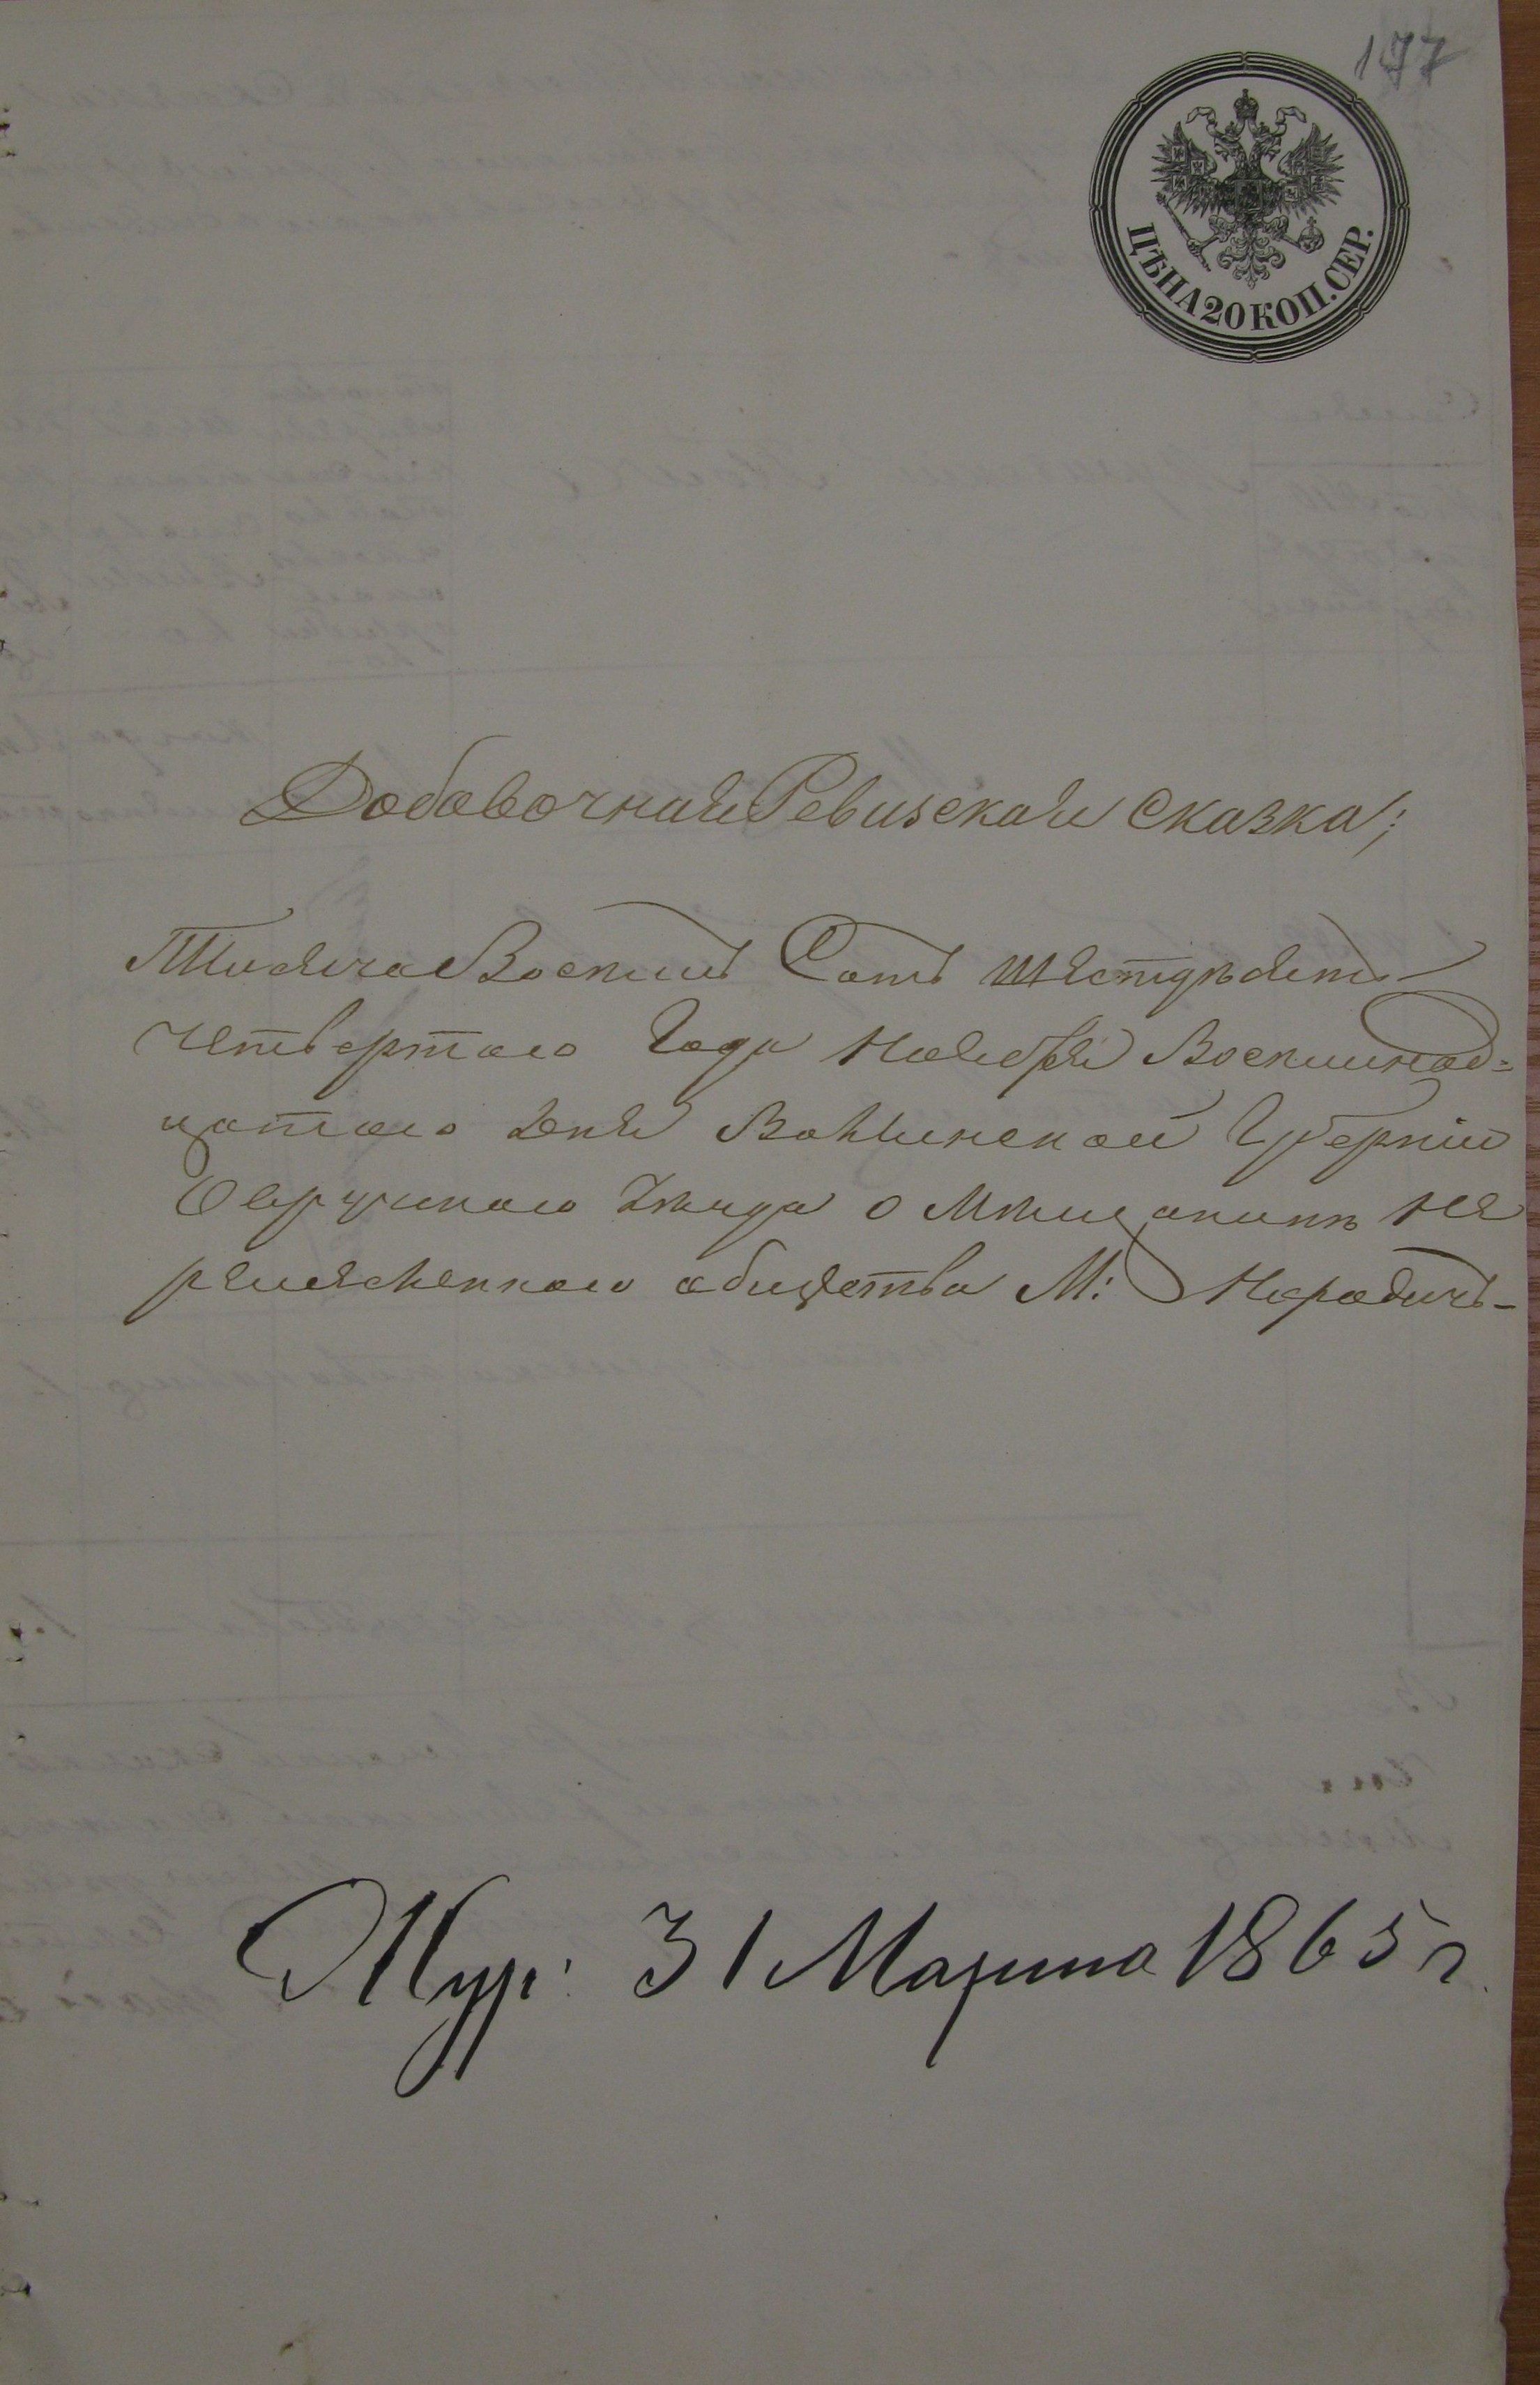 177
ЦѢНА 20 КОП. СЕР.
Добавочная Ревизская сказка;
Тысяча Восемь Сотъ шестдѣсятъ
четвертаго Года Ноября Восемнад=
цатаго дня Волынской Губерніи
Овручскаго Уѣзда о Мѣщанинѣ Ев
рейскаго общества М: Народичь-
Жур: 31 Марта 1865 г.